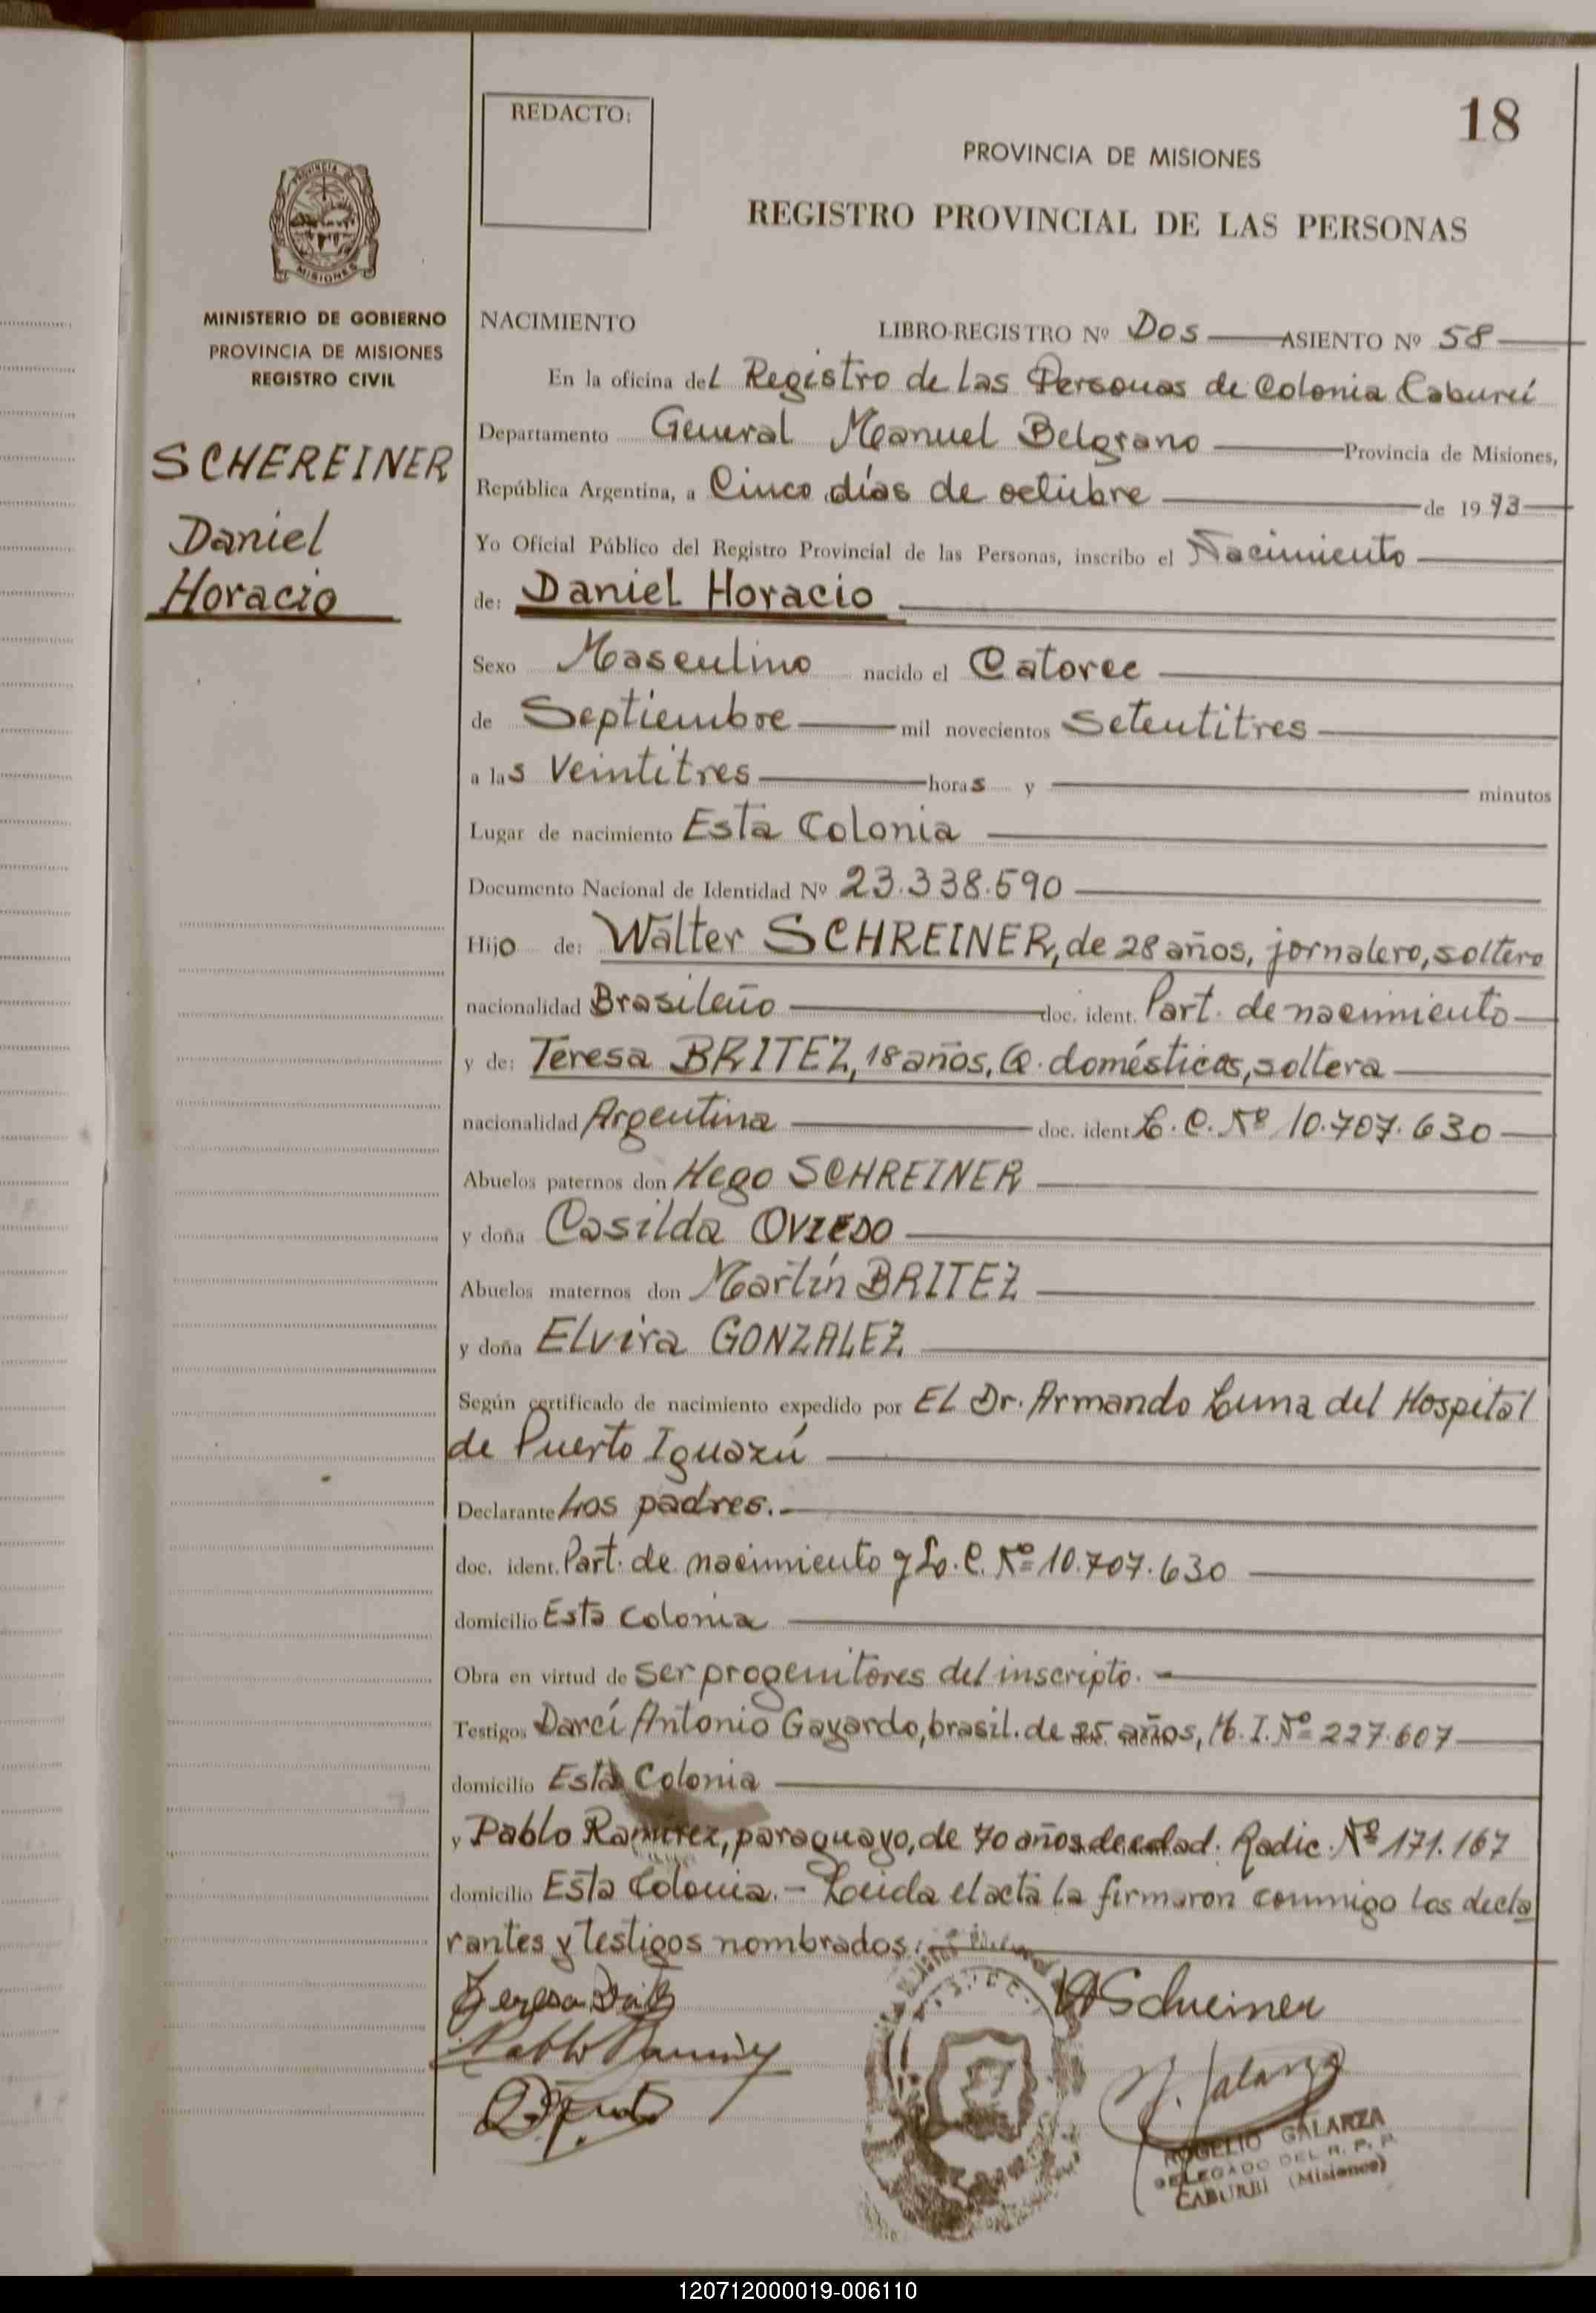 18
REDACTO:
PROVINCIA DE MISIONES
REGISTRO PROVINCIAL DE LAS PERSONAS
PROVINCIA DE
MISIONES
MINISTERIO DE GOBIERNO
PROVINCIA DE MISIONES
REGISTRO CIVIL
SCHEREINER
Daniel
Horacio
NACIMIENTO LIBRO-REGISTRO Nº Dos ASIENTO Nº 58
En la oficina del Registro de las Personas de Colonia Cabureí
Departamento General Manuel Belgrano Provincia de Misiones,
República Argentina, a Cinco días de octubre de 1973
Yo Oficial Público del Registro Provincial de las Personas, inscribo el Nacimiento
de: Daniel Horacio
Sexo Masculino nacido el Catorce
de Septiembre mil novecientos Setentitres
a las Veintitres horas y minutos
Lugar de nacimiento Esta Colonia
Documento Nacional de Identidad Nº 23.338.590
Hijo de: Walter SCHREINER, de 28 años, jornalero, soltero
nacionalidad Brasileño doc. ident. Part. de nacimiento
y de: Teresa BRITEZ, 18 años, Q. domésticos, soltera
nacionalidad Argentina doc. ident L. C. Nº 10.707.630
Abuelos paternos don Hego SCHREINER
y doña Casilda OVIEDO
Abuelos maternos don Martín BRITEZ
y doña Elvira GONZALEZ
Según certificado de nacimiento expedido por El Dr. Armando Luna del Hospital
de Puerto Iguazú
Declarante Los padres.-
doc. ident. Part. de nacimiento y L. C. Nº 10.707.630
domicilio Esta Colonia
Obra en virtud de ser progenitores del inscripto.-
Testigos Darcí Antonio Gayardo, brasil. de 25 años, M. I. Nº 227.607
domicilio Esta Colonia
y Pablo Ramirez, paraguayo, de 70 años de edad. Radic. Nº 171.167
domicilio Esta Colonia.- Leida el acta la firmaron conmigo los decla
rantes y testigos nombrados.-
Teresa Britez
WSchreiner
Pablo Ramirez
R. Galarza
ROGELIO GALARZA
DELEGADO DEL R. P. P.
CABUREI (Misiones)
120712000019-006110